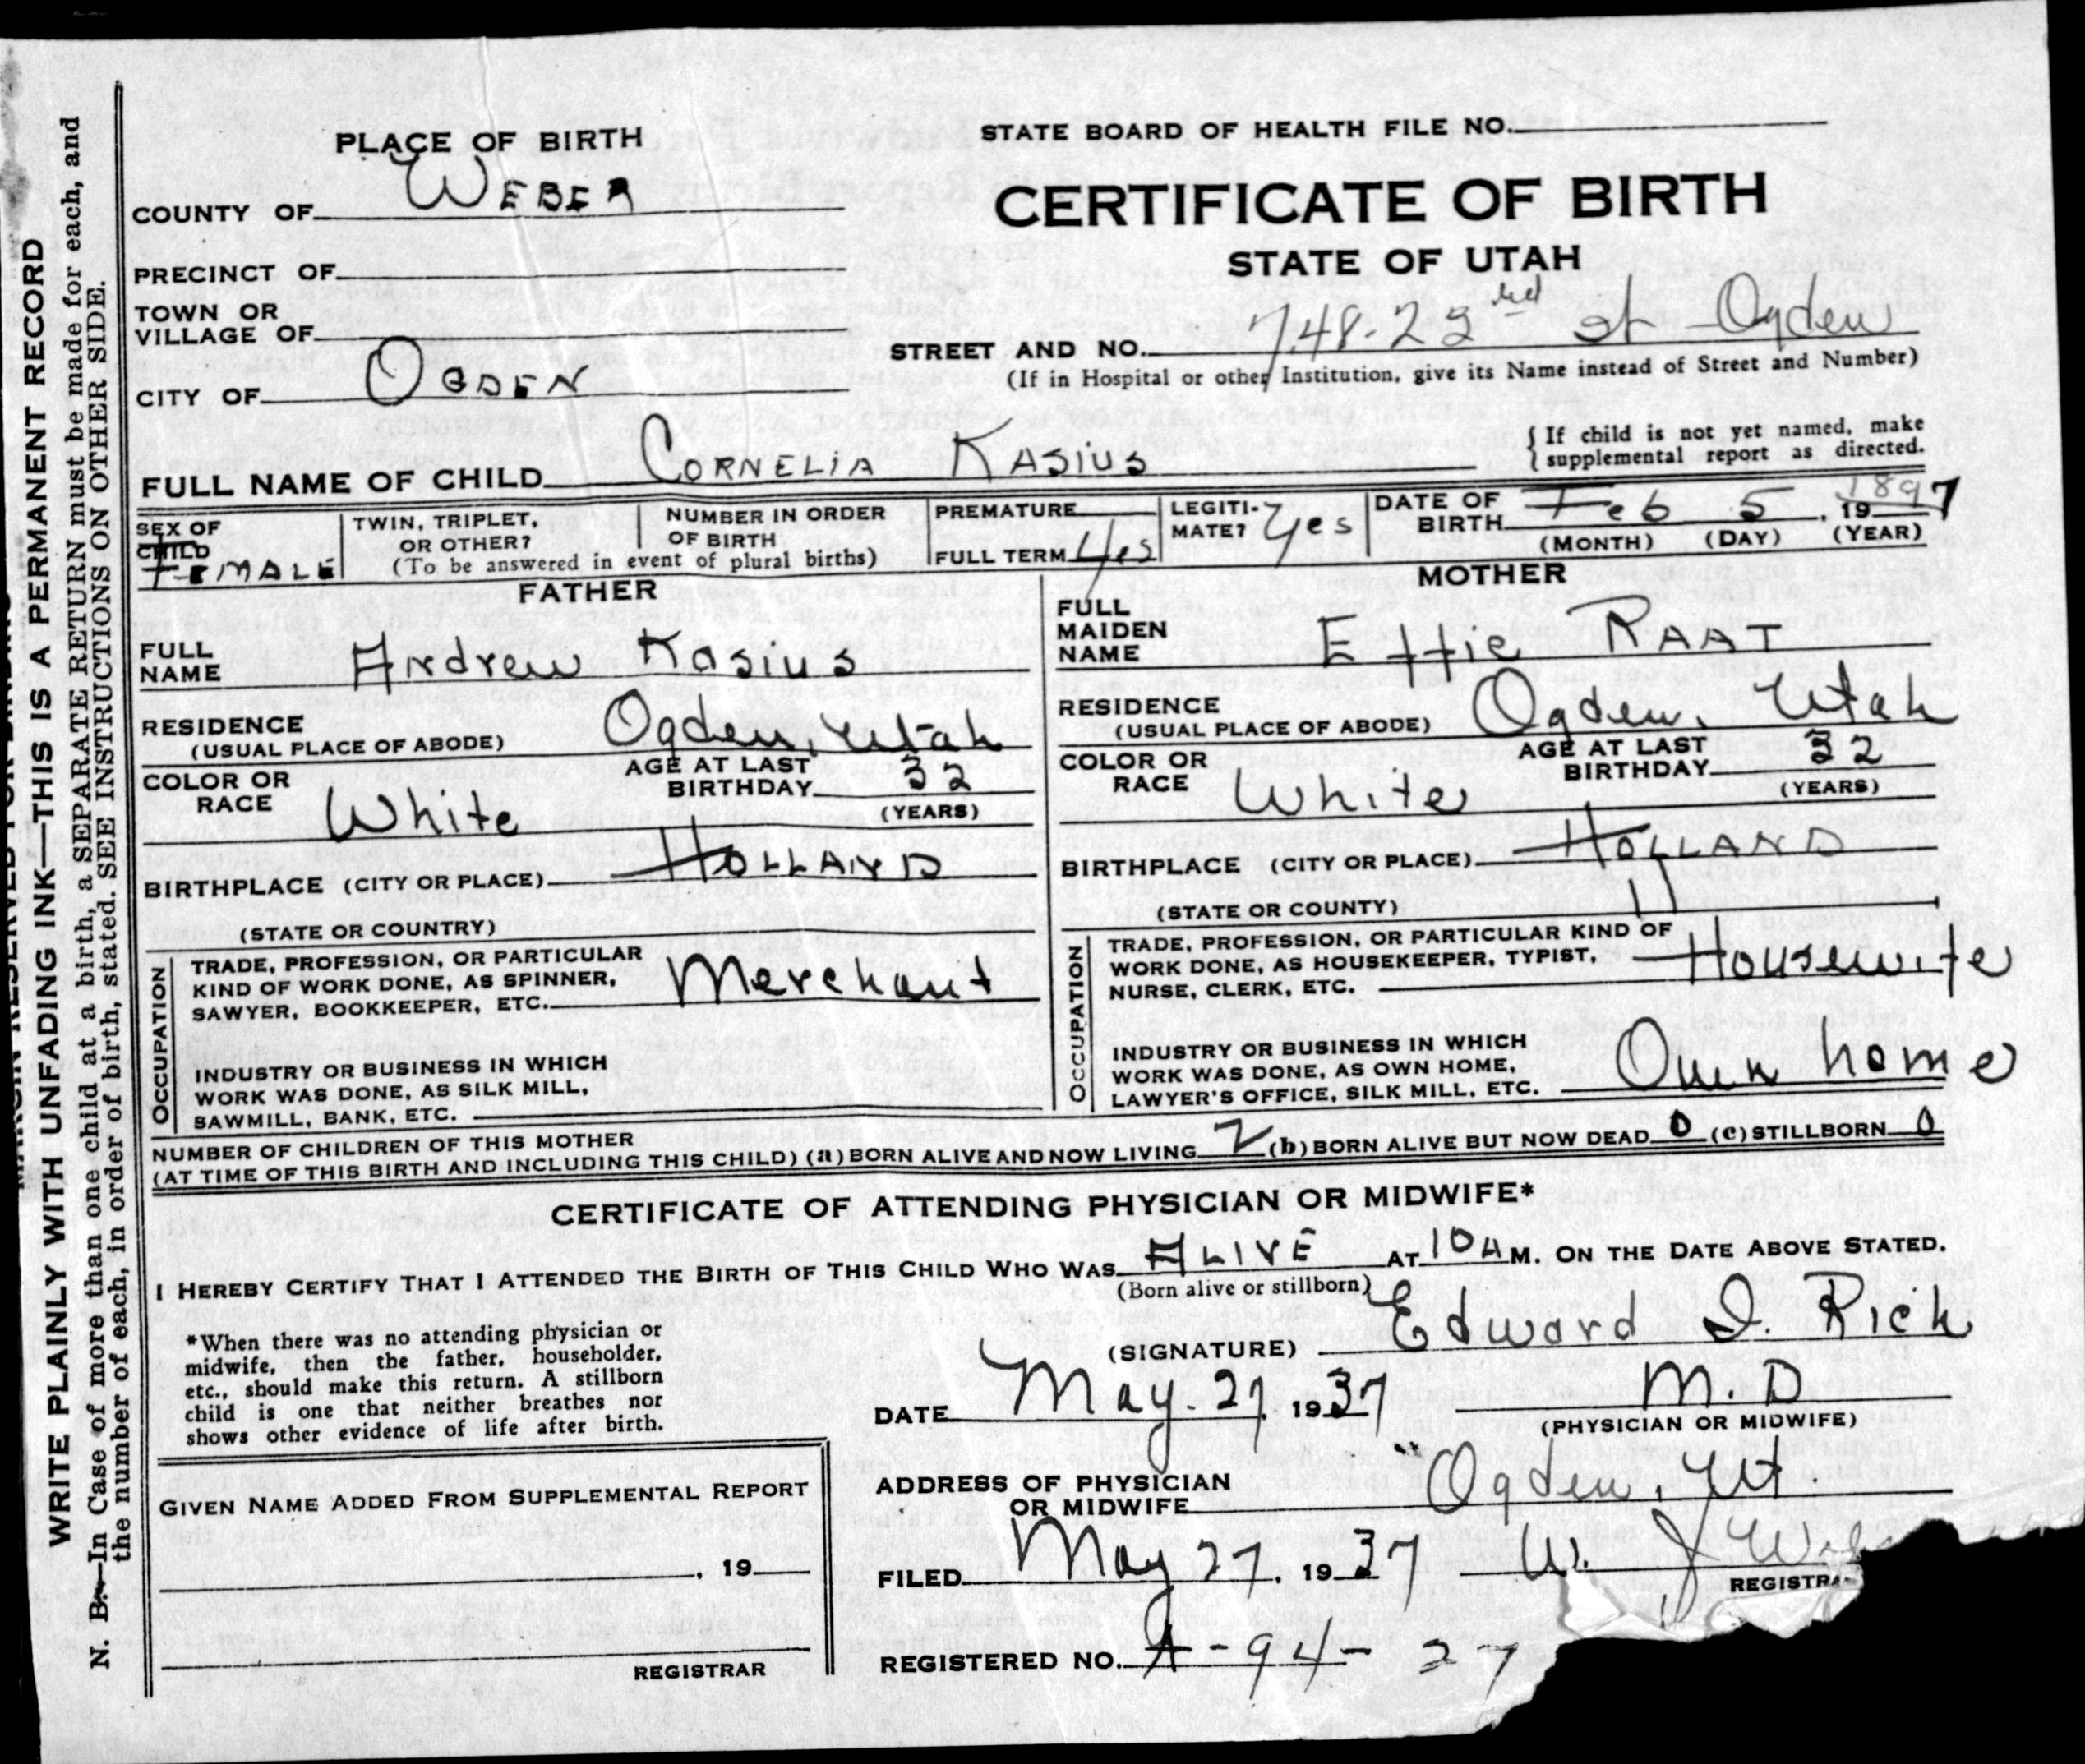 WRITE PLAINLY WITH UNFADING INK—THIS IS A PERMANENT RECORD
N. B.—In Case of more than one child at a birth, a SEPARATE RETURN must be made for each, and
the number of each, in order of birth, stated. SEE INSTRUCTIONS ON OTHER SIDE.
PLACE OF BIRTH
COUNTY OF WEBER
PRECINCT OF
TOWN OR
VILLAGE OF
CITY OF OGDEN
STATE BOARD OF HEALTH FILE NO.
CERTIFICATE OF BIRTH
STATE OF UTAH
STREET AND NO. 748-22nd st Ogden
(If in Hospital or other Institution, give its Name instead of Street and Number)
FULL NAME OF CHILD CORNELIA KASIUS
{ If child is not yet named, make
supplemental report as directed.
SEX OF
CHILD
FEMALE
TWIN, TRIPLET,
OR OTHER?
NUMBER IN ORDER
OF BIRTH
(To be answered in event of plural births)
PREMATURE
FULL TERM Yes
LEGITI-
MATE? Yes
DATE OF
BIRTH Feb 5, 19 1897
(MONTH) (DAY) (YEAR)
FATHER
FULL
NAME Andrew Kasius
RESIDENCE
(USUAL PLACE OF ABODE) Ogden, Utah
COLOR OR
RACE White
AGE AT LAST
BIRTHDAY 32
(YEARS)
BIRTHPLACE (CITY OR PLACE) HOLLAND
(STATE OR COUNTRY)
OCCUPATION
TRADE, PROFESSION, OR PARTICULAR
KIND OF WORK DONE, AS SPINNER,
SAWYER, BOOKKEEPER, ETC. Merchant
INDUSTRY OR BUSINESS IN WHICH
WORK WAS DONE, AS SILK MILL,
SAWMILL, BANK, ETC.
MOTHER
FULL
MAIDEN
NAME Effie RAAT
RESIDENCE
(USUAL PLACE OF ABODE) Ogden, Utah
COLOR OR
RACE White
AGE AT LAST
BIRTHDAY 32
(YEARS)
BIRTHPLACE (CITY OR PLACE) HOLLAND
(STATE OR COUNTY) "
OCCUPATION
TRADE, PROFESSION, OR PARTICULAR KIND OF
WORK DONE, AS HOUSEKEEPER, TYPIST,
NURSE, CLERK, ETC. Housewife
INDUSTRY OR BUSINESS IN WHICH
WORK WAS DONE, AS OWN HOME,
LAWYER'S OFFICE, SILK MILL, ETC. Own home
NUMBER OF CHILDREN OF THIS MOTHER
(AT TIME OF THIS BIRTH AND INCLUDING THIS CHILD) (a) BORN ALIVE AND NOW LIVING 2 (b) BORN ALIVE BUT NOW DEAD 0 (c) STILLBORN 0
CERTIFICATE OF ATTENDING PHYSICIAN OR MIDWIFE*
I HEREBY CERTIFY THAT I ATTENDED THE BIRTH OF THIS CHILD WHO WAS ALIVE AT 10 A M. ON THE DATE ABOVE STATED.
(Born alive or stillborn)
*When there was no attending physician or
midwife, then the father, householder,
etc., should make this return. A stillborn
child is one that neither breathes nor
shows other evidence of life after birth.
(SIGNATURE) Edward I. Rich
DATE May. 27, 1937 M.D
(PHYSICIAN OR MIDWIFE)
ADDRESS OF PHYSICIAN
OR MIDWIFE Ogden, Ut.
FILED May 27, 1937 W. J.
REGISTRA
REGISTERED NO. A-94-27
GIVEN NAME ADDED FROM SUPPLEMENTAL REPORT
, 19
REGISTRAR